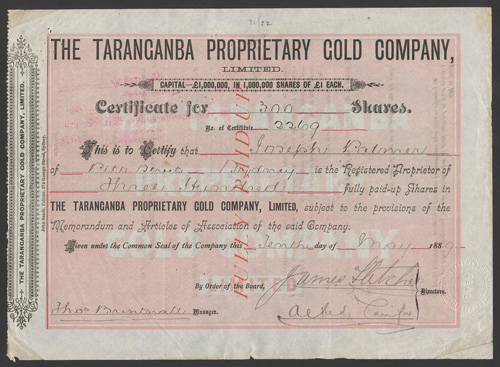 30/22
THE TARANGANBA PROPRIETARY GOLD COMPANY,
LIMITED.
CAPITAL—£1,000,000, IN 1,000,000 SHARES OF £1 EACH.
Certificate for 300 Shares.
No. of Certificate 2269
This is to Certify that Joseph Palmer
of Sydney is the Registered Proprietor of
Three Hundred fully paid-up Shares in
THE TARANGANBA PROPRIETARY GOLD COMPANY, LIMITED, subject to the provisions of the
Memorandum and Articles of Association of the said Company.
Given under the Common Seal of the Company this Tenth day of May 1889
By Order of the Board, James Fletcher
Directors.
Manager.
FULLY PAID UP
THE TARANGANBA PROPRIETARY GOLD COMPANY, LIMITED.